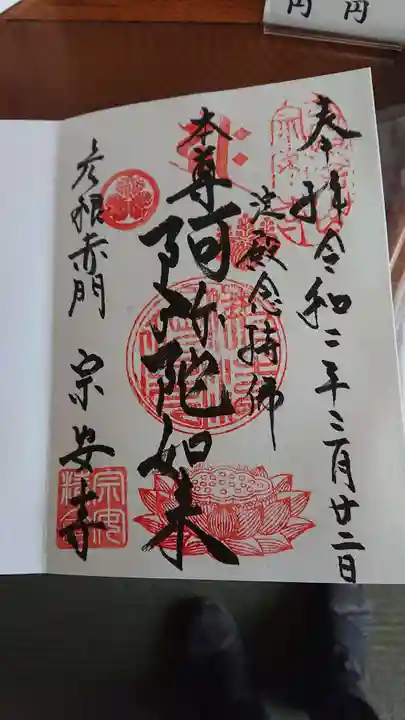 円 円
奉拝 令和二年三月廿二日
淀殿念持佛
本尊 阿弥陀如来
彦根赤門 宗安寺